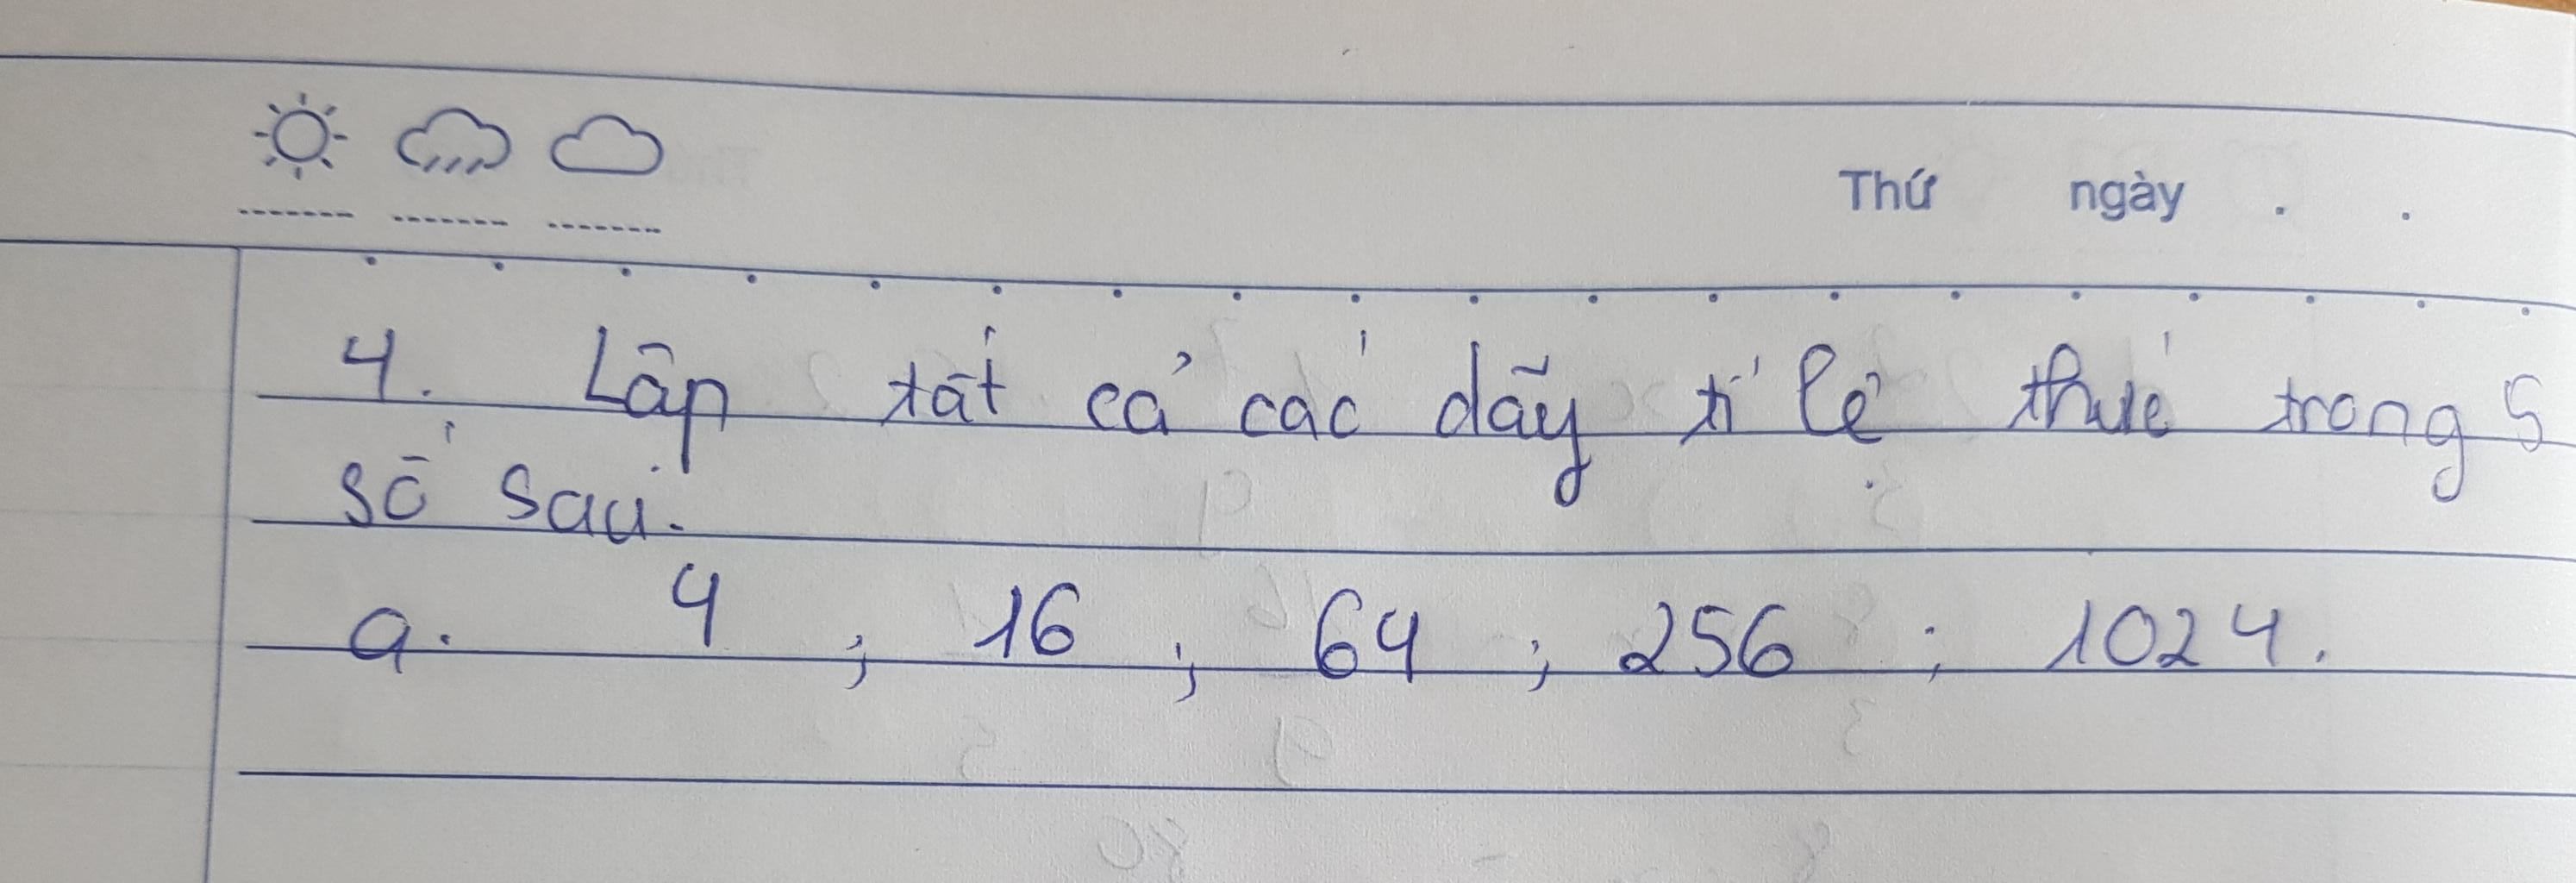 Thứ ngày . .
4. Lập tất cả các dãy tỉ lệ thức trong 5
số sau:
a. 4 ; 16 ; 64 ; 256 ; 1024.